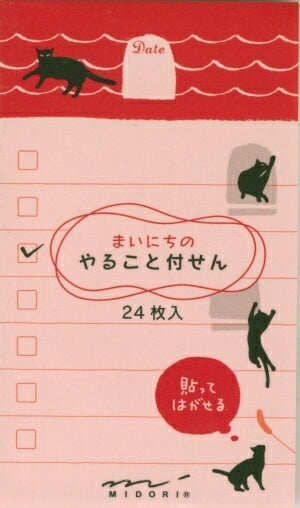 Date
まいにちの
やること付せん
24枚入
貼って
はがせる
MIDORI®